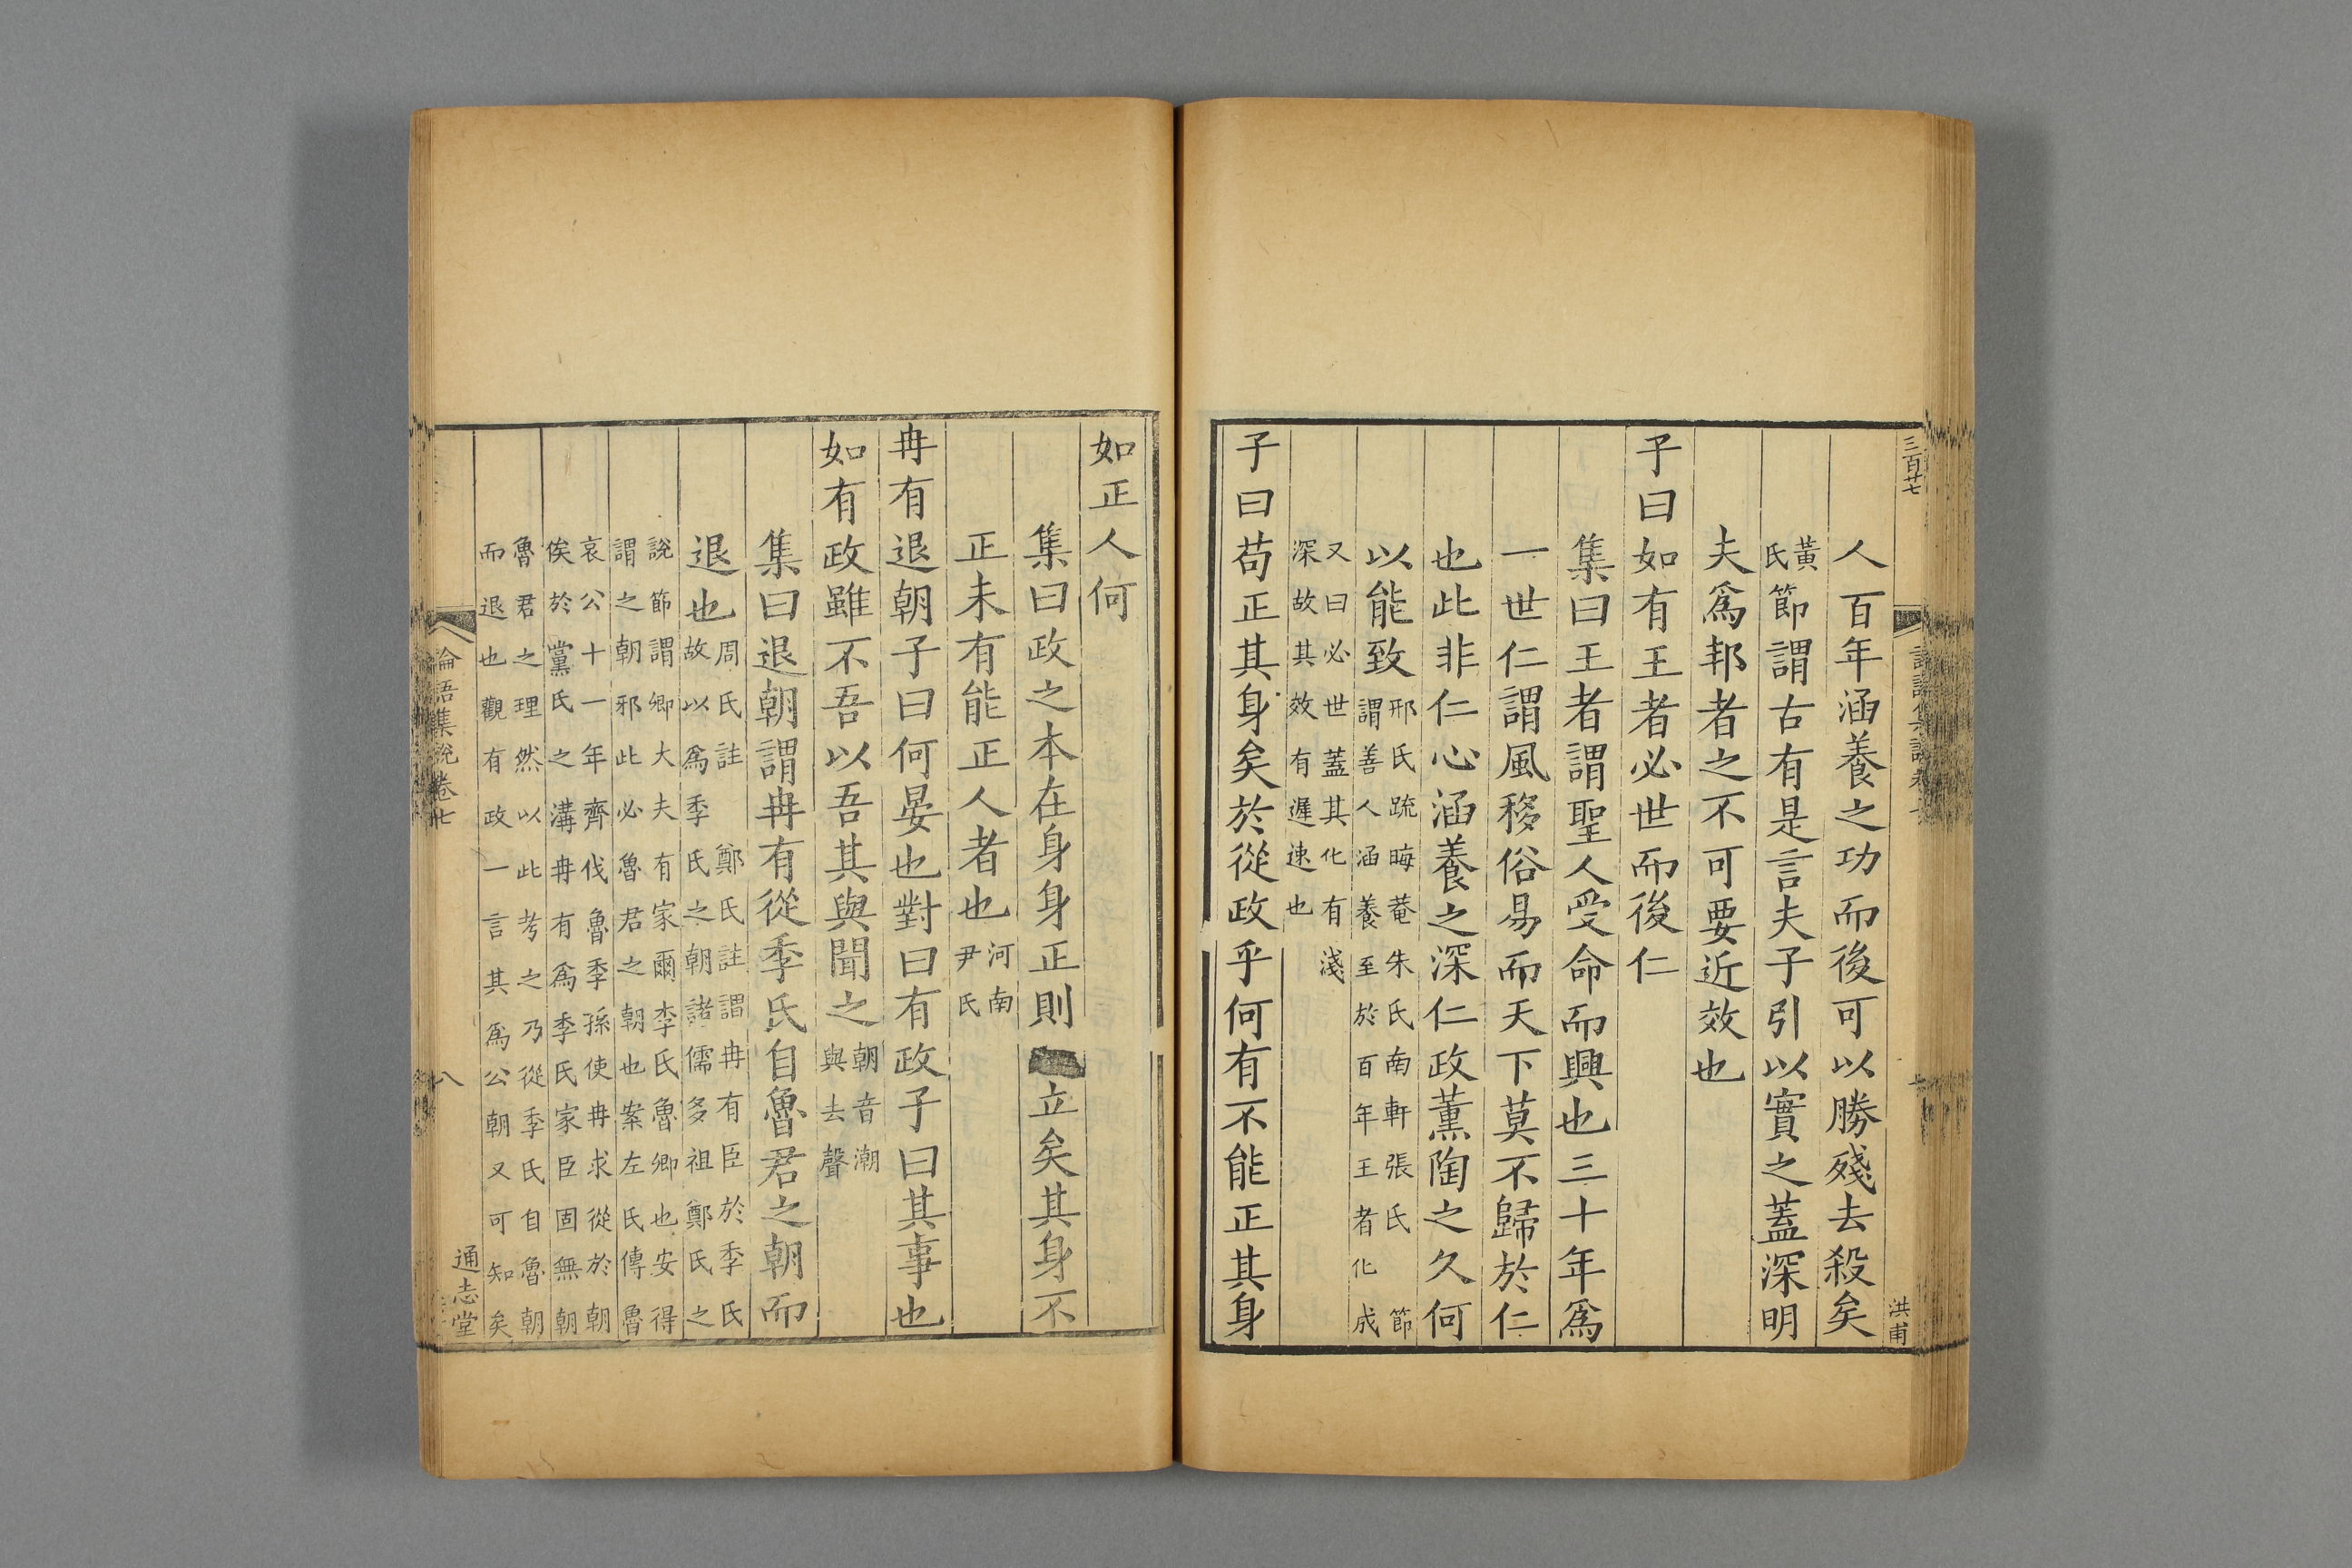 三百廿七
洪甫
人百年涵養之功而後可以勝殘去殺矣
黃
氏
節謂古有是言夫子引以實之蓋深明
夫爲邦者之不可要近效也
子曰如有王者必世而後仁
集曰王者謂聖人受命而興也三十年爲
一世仁謂風移俗易而天下莫不歸於仁
也此非仁心涵養之深仁政薰陶之久何
以能致
邢氏疏晦菴朱氏南軒張氏 節
謂善人涵養至於百年王者化成
又曰必世蓋其化有淺
深故其效有遲速也
子曰苟正其身矣於從政乎何有不能正其身
如正人何
集曰政之本在身身正則
立矣其身不
正未有能正人者也
河南
尹氏
冉有退朝子曰何晏也對曰有政子曰其事也
如有政雖不吾以吾其與聞之
朝音潮
與去聲
集曰退朝謂冉有從季氏自魯君之朝而
退也
周氏註 鄭氏註謂冉有臣於季氏
故以爲季氏之朝諸儒多祖鄭氏之
說節謂卿大夫有家爾李氏魯卿也安得
謂之朝邪此必魯君之朝也案左氏傳魯
哀公十一年齊伐魯季孫使冉求從於朝
俟於黨氏之溝冉有爲季氏家臣固無朝
魯君之理然以此考之乃從季氏自魯朝
而退也觀有政一言其爲公朝又可知矣
論語集說卷七
八
通志堂